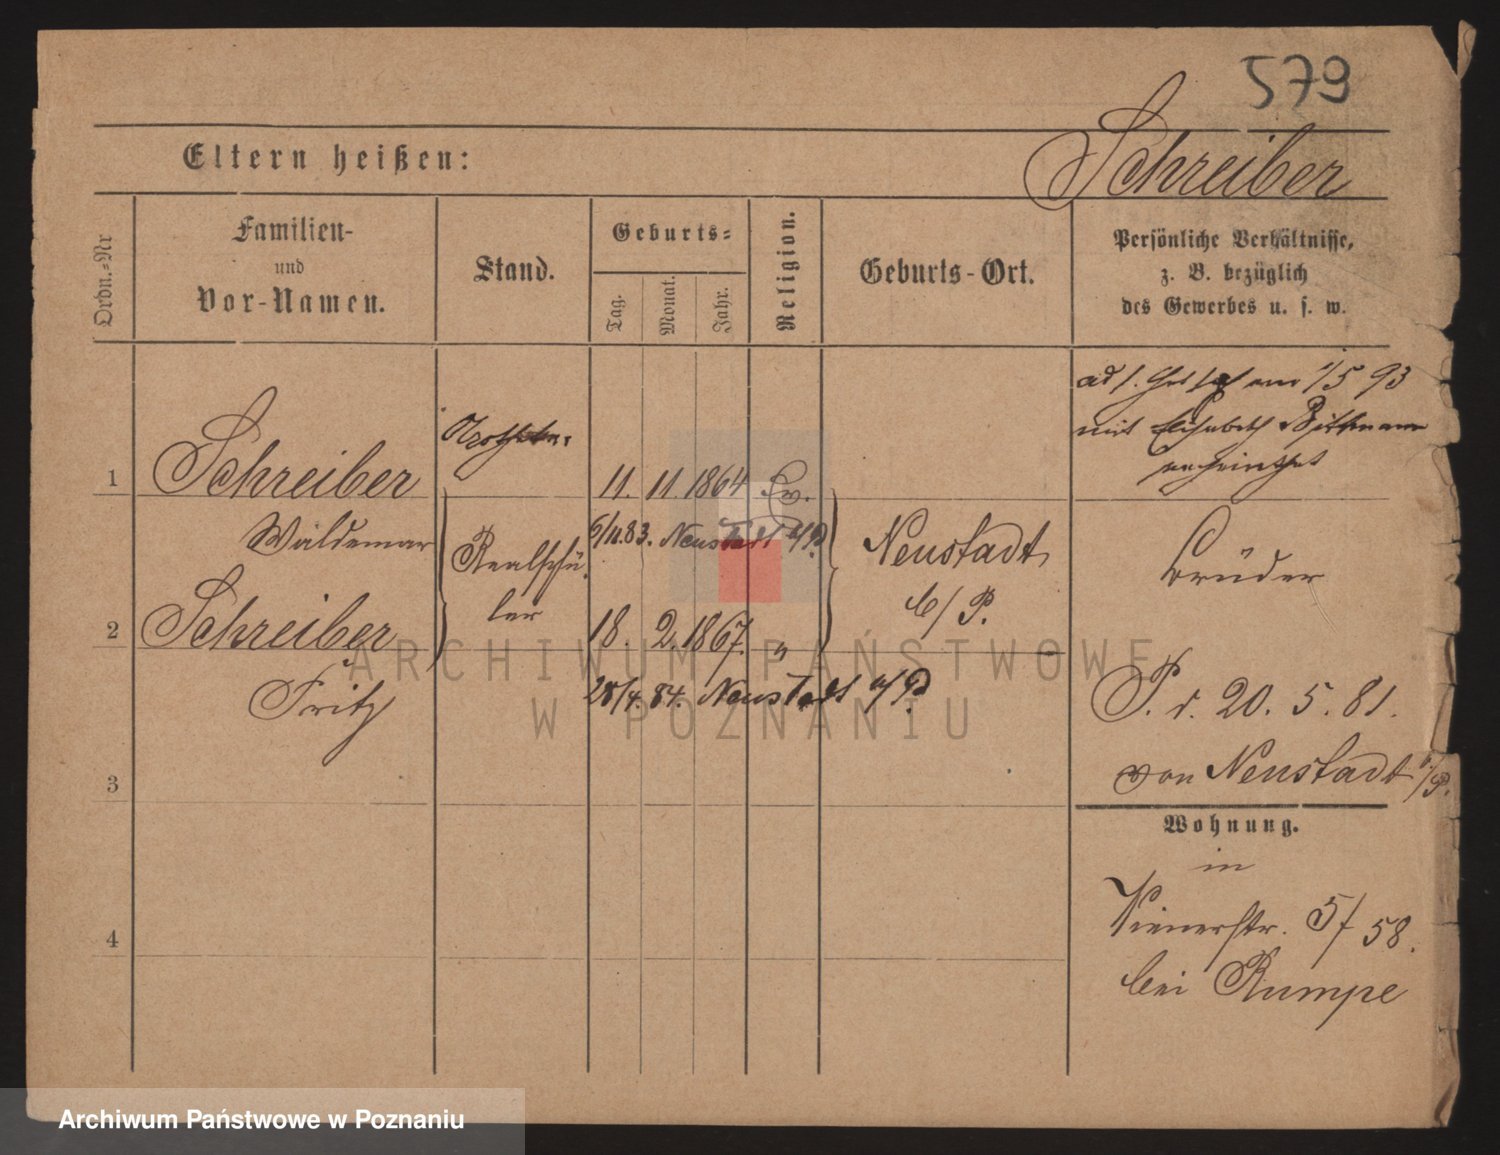 579
Schreiber
Eltern heißen:
Ordn.=Nr
Familien-
und
Vor-Namen.
Stand.
Geburts=
Tag.
Monat.
Jahr.
Religion.
Geburts-Ort.
Persönliche Verhältnisse,
z. B. bezüglich
des Gewerbes u. s. w.
am 1/5 93
mit Elisabeth
verheirathet
1
Schreiber
11. 11. 1864 Ev.
Waldemar
Realschü-
ler
6/11.83. Neustadt
Neustadt
b/P.
Brüder
2
Schreiber
18. 2. 1867. "
Fritz
28/4. 84. Neustadt
P. v. 20. 5. 81.
von Neustadt b/P.
3
Wohnung.
in
Wienerstr. 5/58.
bei Rumpe
4
ARCHIWUM PAŃSTWOWE
W POZNANIU
Archiwum Państwowe w Poznaniu